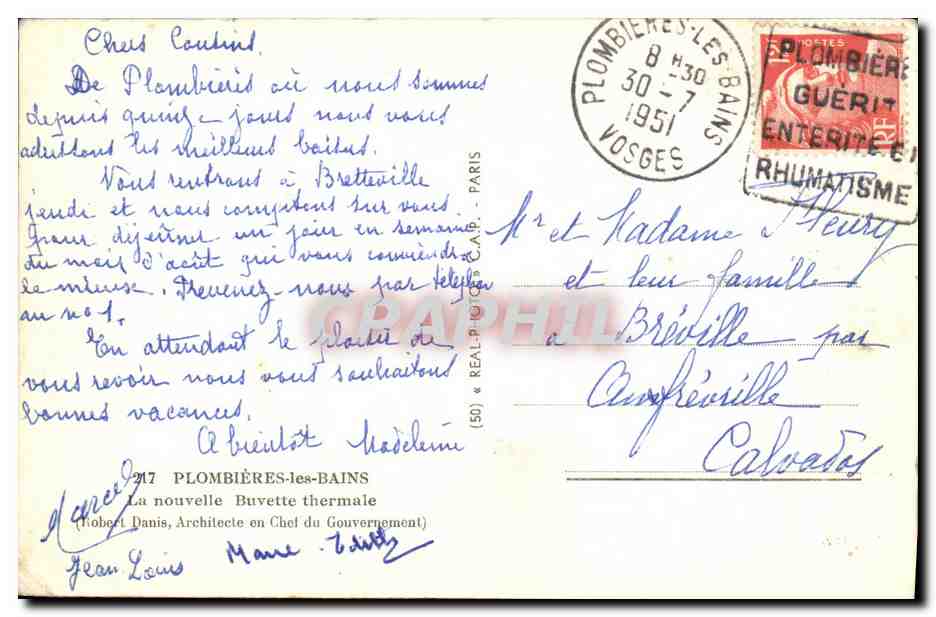 Chers Cousins.
De Plombières où nous sommes
depuis quinze jours nous vous
adressons les meilleurs baisers.
Nous rentrons à Bretteville
jeudi et nous comptons sur vous
pour déjeuner un jour en semaine
du mois d'août qui vous conviendra
le mieux. Prévenez-nous par téléphone
au no 1.
En attendant le plaisir de
vous revoir nous vous souhaitons
bonnes vacances.
A bientôt Madeleine
217 PLOMBIÈRES-les-BAINS
La nouvelle Buvette thermale
(Robert Danis, Architecte en Chef du Gouvernement)
Marcel
Jean Louis Marie-Edith
(50) « REAL-PHOTO » C.A.P. - PARIS
PLOMBIERES-LES-BAINS
8 H30
30 - 7
1951
VOSGES
15F POSTES
RF
PLOMBIÈRE
GUÉRIT
ENTERITE ET
RHUMATISME
Mr et Madame Fleury
et leur famille
à Bréville par
Amfréville
Calvados
CPAPHIL